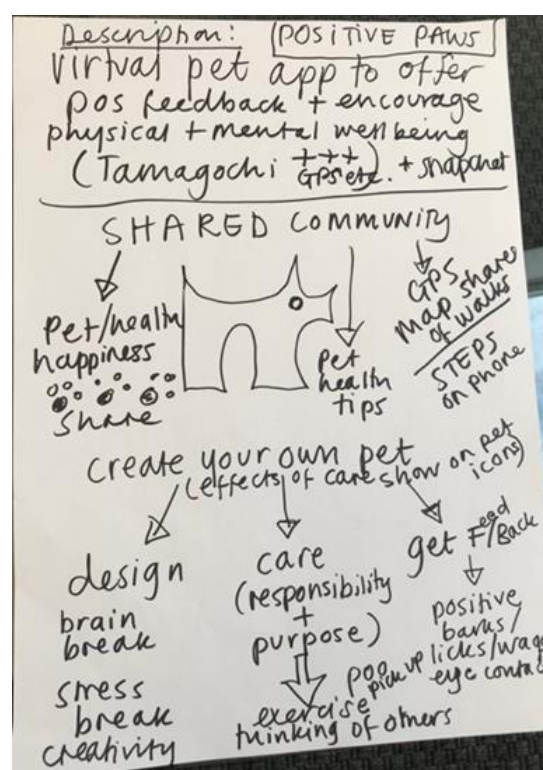 Description: POSITIVE PAWS
Virtual pet app to offer
pos feedback + encourage
physical + mental wellbeing
(Tamagochi +++ GPS etc.) + snapchat
SHARED COMMUNITY
Pet/health
happiness
Share
Pet
health
tips
GPS
Map shares
of walks
STEPS
on phone
Create your own pet
(effects of care show on pet
icons)
design
brain
break
stress
break
creativity
care
(responsibility
+
purpose)
exercise
thinking of others
poo
pick up
get Feed/Back
positive
barks/
licks/wags
eye contact